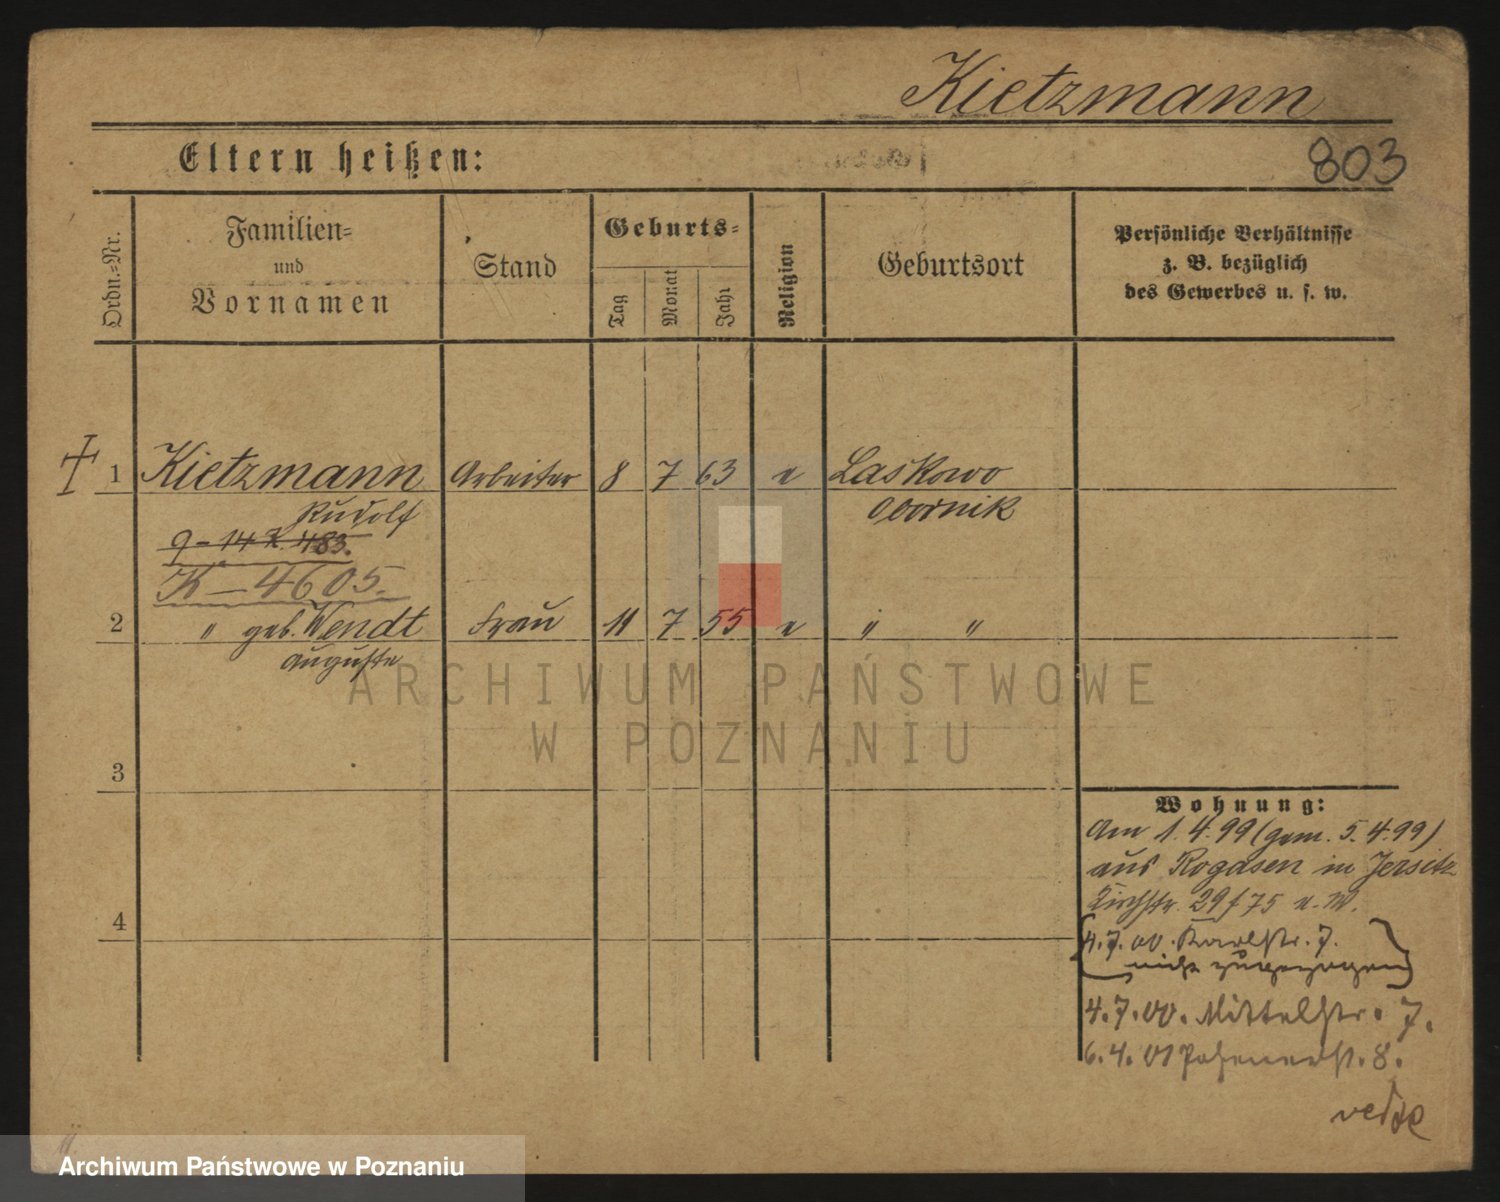 Kietzmann
803
Eltern heißen:
Ordn.-Nr.
Familien- und Vornamen
Stand
Geburts-
Tag
Monat
Jahr
Religion
Geburtsort
Persönliche Verhältnisse
z. B. bezüglich
des Gewerbes u. s. w.
1 Kietzmann Arbeiter 8 7 63 e Laskowo
Rudolf Obornik
9-14 K. 483.
K-4605
2 " geb. Wendt Frau 11 7 55 e " "
Auguste
3
4
Wohnung:
Am 1.4.99 (gem. 5.4.99)
aus Rogasen in Jersitz
Kirchstr. 29 f 75
4.7.00. Karlstr. 7.
nicht zugezogen
4.7.00. Mittelstr. 7.
6.4.01 Posenerstr. 8.
ARCHIWUM PAŃSTWOWE
W POZNANIU
Archiwum Państwowe w Poznaniu